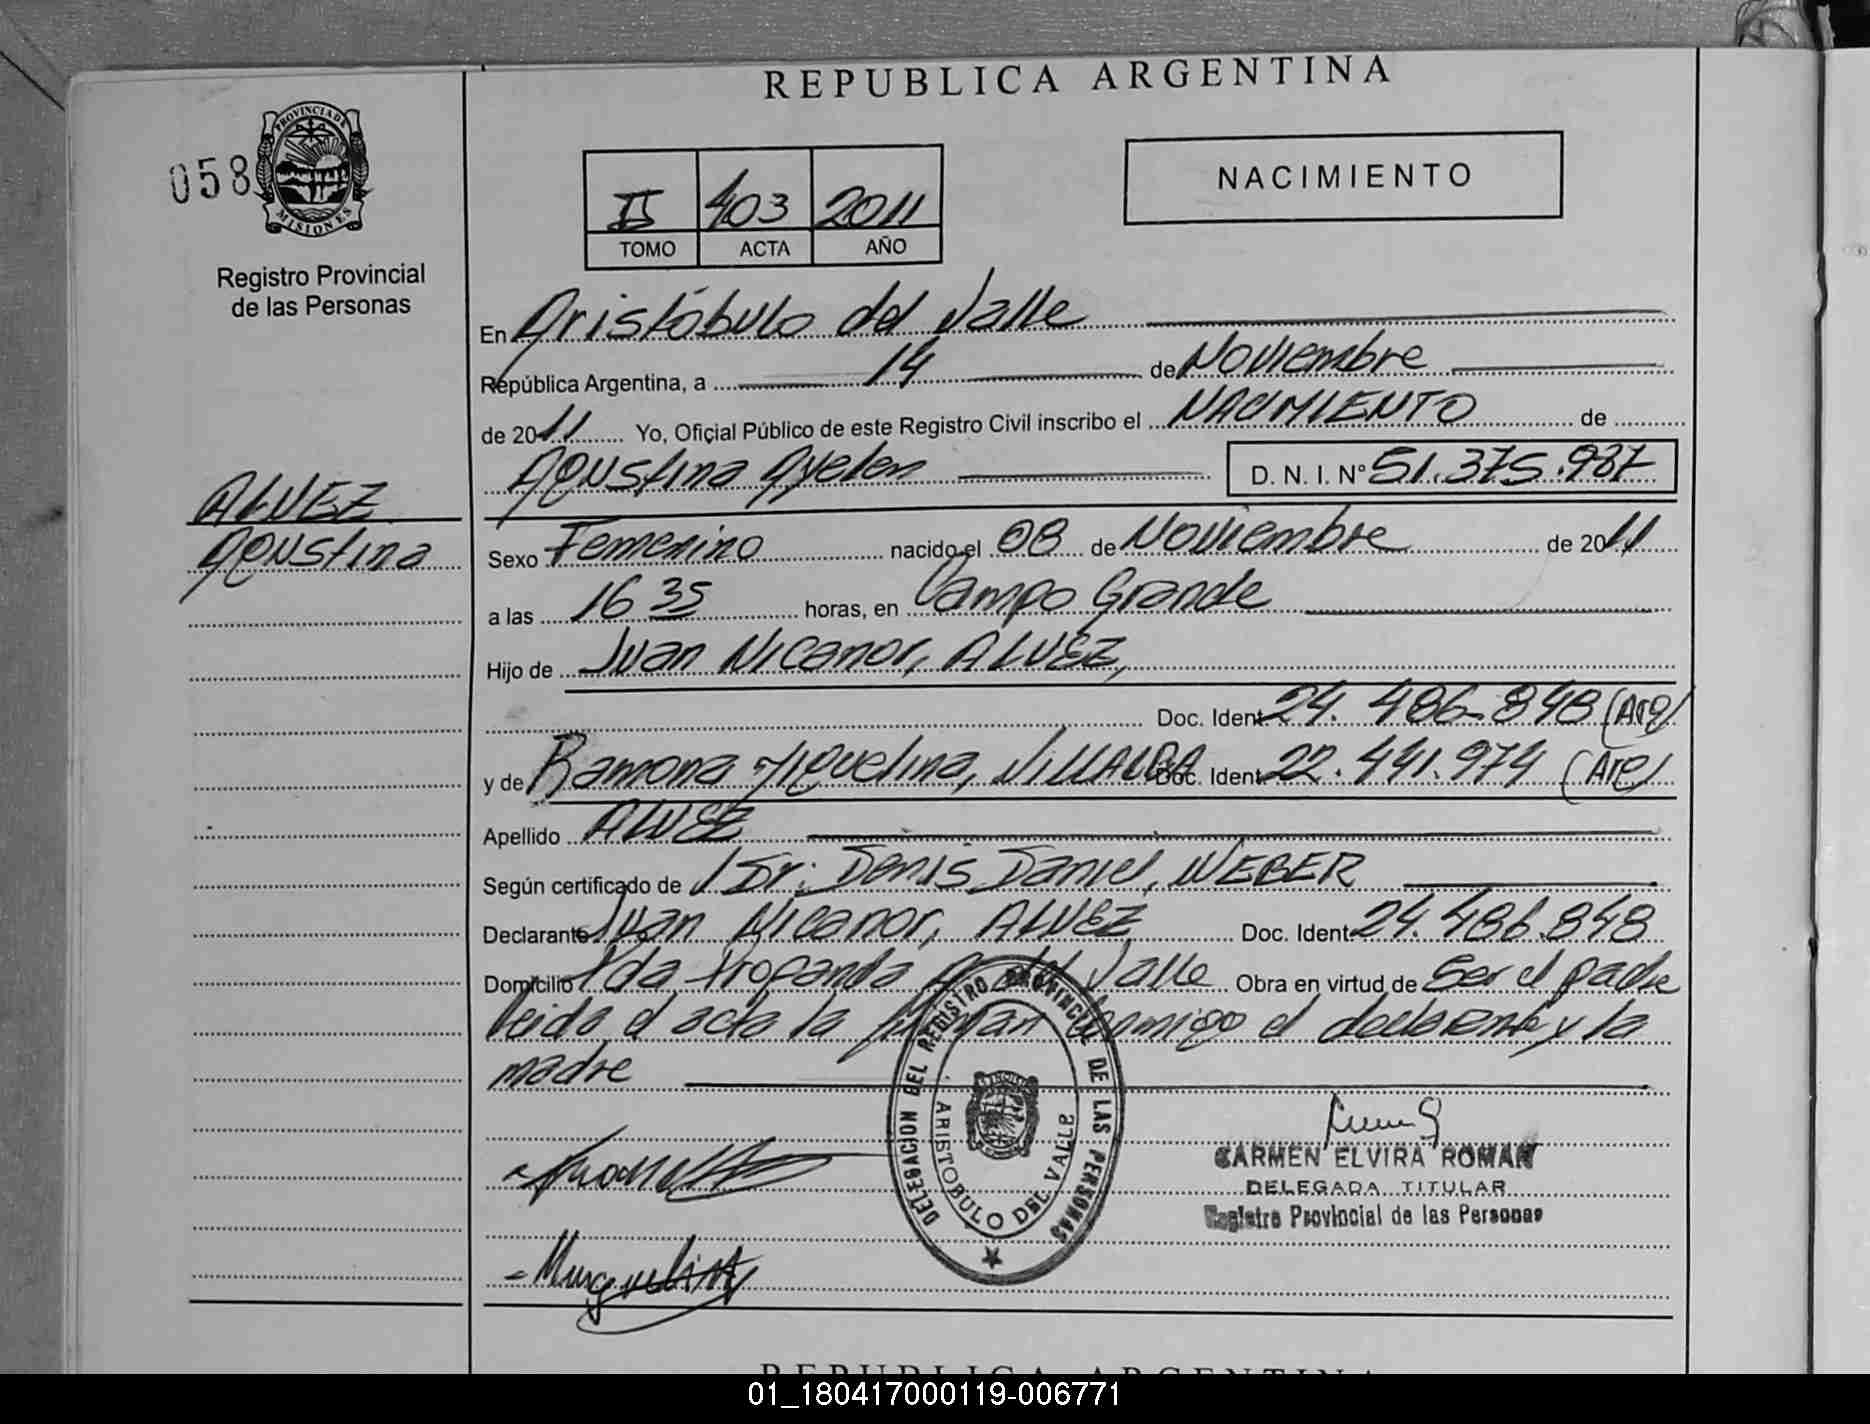 REPUBLICA ARGENTINA
058
PROVINCIA DE
MISIONES
Registro Provincial
de las Personas
II 403 2011
TOMO ACTA AÑO
NACIMIENTO
En Aristóbulo del Valle
República Argentina, a 14 de Noviembre
de 2011 Yo, Oficial Público de este Registro Civil inscribo el NACIMIENTO de
Agustina Ayelen D. N. I. Nº 51.375.987
ALVEZ
Agustina
Sexo Femenino nacido el 08 de Noviembre de 2011
a las 16 35 horas, en Campo Grande
Hijo de Juan Nicanor, ALVEZ,
Doc. Ident. 24.486.848 (Arg)
y de Ramona Miguelina, VILLALBA Doc. Ident. 22.441.974 (Arg)
Apellido ALVEZ
Según certificado de Dr. Denis Daniel, WEBER
Declarante Juan Nicanor, ALVEZ Doc. Ident. 24.486.848
Domicilio Pda A. del Valle Obra en virtud de Ser el padre
leida el acta la firman conmigo el declarante y la
madre
DELEGACION DEL REGISTRO PROVINCIAL DE LAS PERSONAS
ARISTOBULO DEL VALLE
CARMEN ELVIRA ROMAN
DELEGADA TITULAR
Registro Provincial de las Personas
REPUBLICA ARGENTINA
01_180417000119-006771